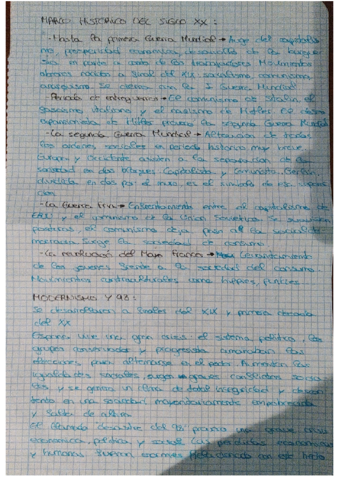 MARCO HISTÓRICO DEL SIGLO XX:
- Hasta la primera Guerra Mundial → Auge del capitalis
mo, prosperidad económica, desarrollo de la burgue
sía en parte a costa de los trabajadores. Movimientos
obreros nacidos a final del XIX: socialismo, comunismo,
anarquismo. Se cierra con la I Guerra Mundial
- Periodo de entreguerras → El comunismo de Stalin, el
fascismo italiano y el nazismo de Hitler. El afán
expansionista de Hitler provoca la segunda Guerra Mundial
- La segunda Guerra Mundial → Alteración de todos
los órdenes sociales en periodo histórico muy breve.
Europa y Occidente asisten a la separación de la
sociedad en dos bloques: Capitalista y Comunista. Berlín,
dividida en dos por el muro, es el símbolo de esa separa
ción
- La Guerra Fría → Enfrentamiento entre el capitalismo de
EEUU y el comunismo de la Unión Soviética. Se suavizan
posturas, el comunismo deja paso al socialis
Surge la sociedad de consumo
- La revolución del Mayo Francés → Levantamiento
de los jóvenes frente a la sociedad del consumo.
Movimientos contraculturales como hippies, punkies.
MODERNISMO Y 98:
Se desarrollaron a finales del XIX y primera década
del XX
España vive una gran crisis: el sistema político, los
grupos conservador y progresista amañaban las
elecciones para alternarse en el poder. Aumentan las
igualdades sociales, surgen graves conflictos
les y se genera un clima de total inseguridad y descon
tento en una sociedad mayoritariamente empobrecida
y falta de
El llamado desastre del 98 provocó una grave crisis
económica, política y social. Las pérdidas económicas
y humanas fueron enormes